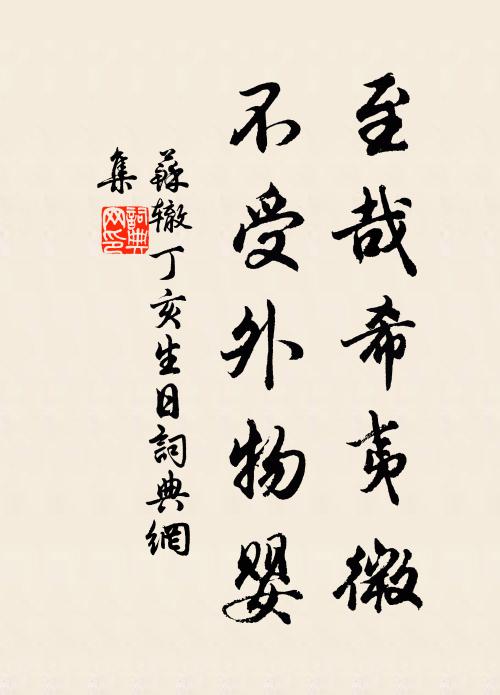 至哉希夷微
不受外物嬰
蘇辙丁亥生日詞典網
集
詞典
网印